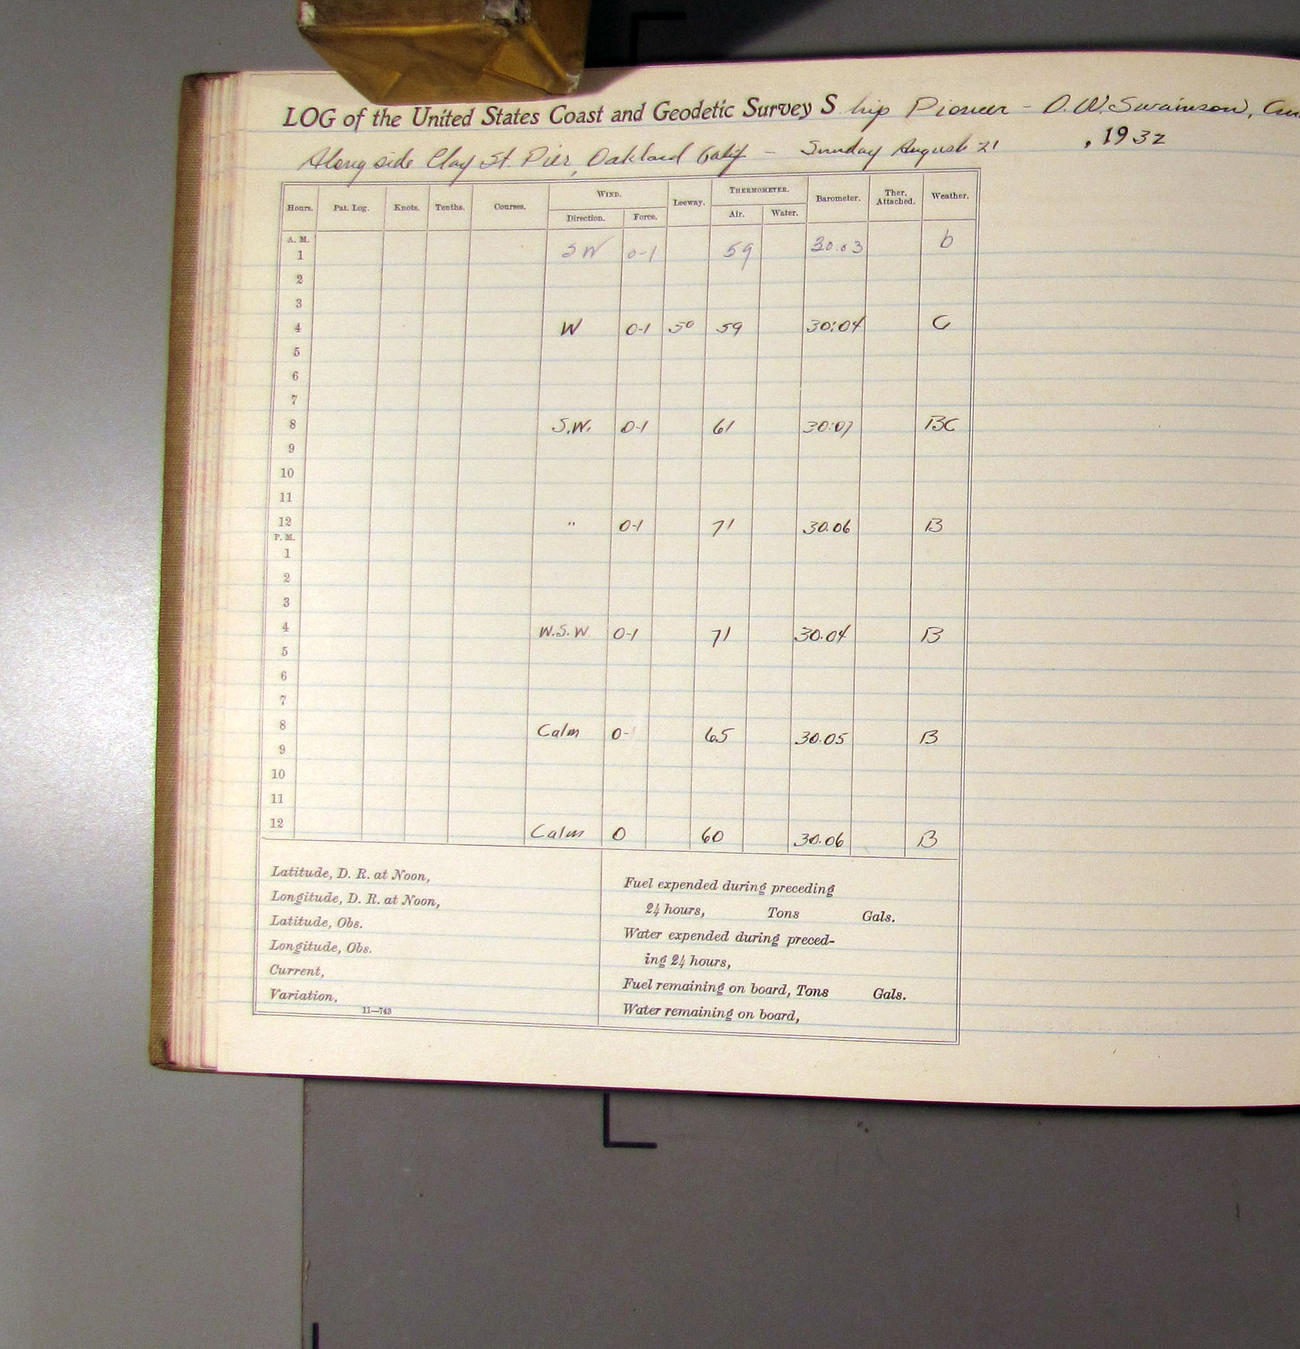 LOG of the United States Coast and Geodetic Survey Ship Pioneer - O.W. Swainson,
Alongside Clay St. Pier, Oakland Calif - Sunday August 21, 1932
Hours. Pat. Log. Knots. Tenths. Courses. WIND. Leeway. THERMOMETER. Barometer. Ther. Attached. Weather.
Direction. Force. Air. Water.
A. M.
1 SW 0-1 59 30.03 b
2
3
4 W 0-1 50 59 30:04 C
5
6
7
8 S.W. 0-1 61 30:07 BC
9
10
11
12 " 0-1 71 30.06 B
P. M.
1
2
3
4 W.S.W 0-1 71 30.04 B
5
6
7
8 Calm 0- 65 30.05 B
9
10
11
12 Calm 0 60 30.06 B
Latitude, D. R. at Noon,
Longitude, D. R. at Noon,
Latitude, Obs.
Longitude, Obs.
Current,
Variation,
11—743
Fuel expended during preceding
24 hours, Tons Gals.
Water expended during preced-
ing 24 hours,
Fuel remaining on board, Tons Gals.
Water remaining on board,